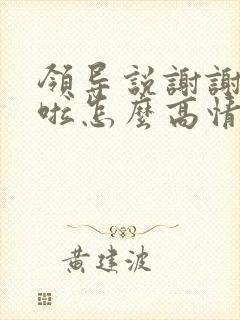 領导説謝謝
啦怎麼高情
黄建波